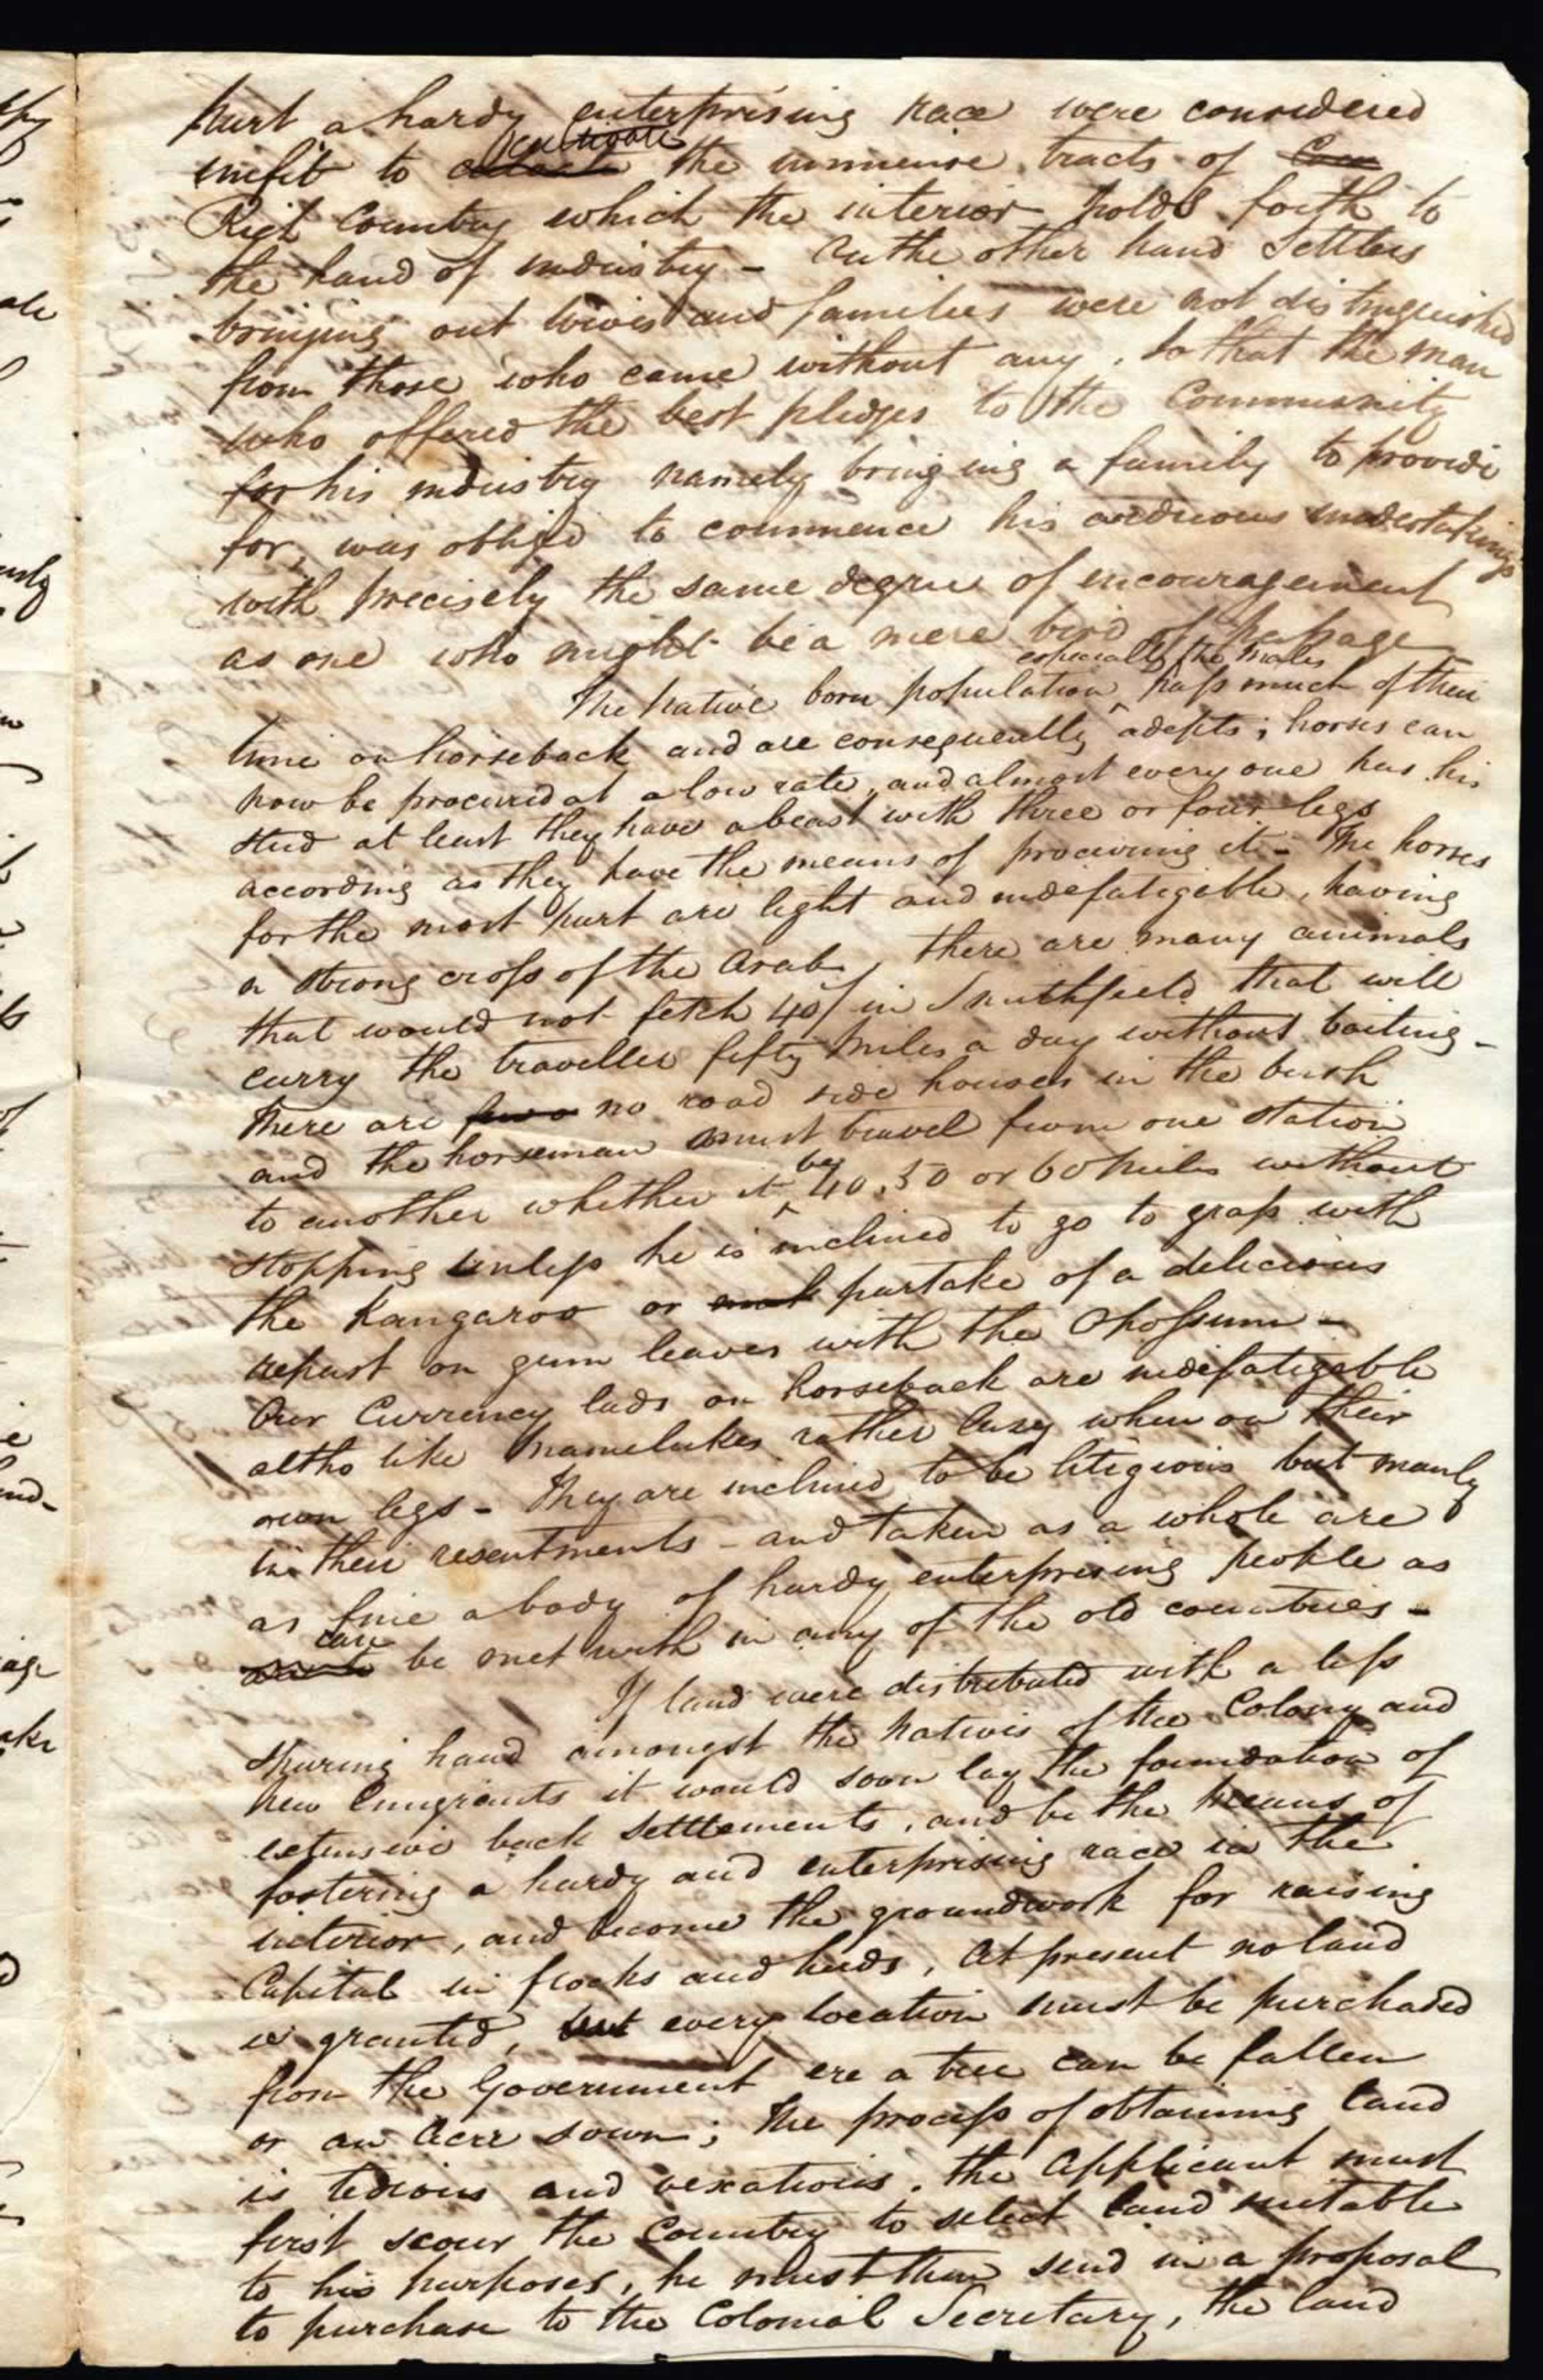 part a hardy enterprising race were considered
unfit to cultivate the immense tracts of
Rich Country which the interior holds forth to
the hand of industry - On the other hand Settlers
bringing out wives and families were not distinguished
from those who came without any, so that the man
who offered the best pledges to the Community
for his industry namely bringing a family to provide
for, was obliged to commence his arduous undertakings
with precisely the same degree of encouragement
as one who might be a mere bird of passage
especially the males
The native born population, pass much of their
time on horseback and are consequently adepts; horses can
now be procured at a low rate, and almost every one has his
stud at least they have a beast with three or four legs
according as they have the means of procuring it - The horses
for the most part are light and indefatigable, having
a strong cross of the Arab, there are many animals
that would not fetch 40/ in Smithfield that will
carry the traveller fifty miles a day without baiting -
There are few no road side houses in the bush
and the horseman must travel from one station
to another whether it be 40, 50 or 60 miles without
stopping unless he is inclined to go to grass with
the Kangaroo or partake of a delicious
repast on gum leaves with the Opossum -
Our Currency lads on horseback are indefatigable
altho like mamelukes rather lazy when on their
own legs - They are inclined to be litigious but manly
in their resentments - and taken as a whole are
as fine a body of hardy enterprising people as
can be met with in any of the old countries -
If land were distributed with a less
sparing hand amongst the natives of the Colony and
new Emigrants it would soon lay the foundation of
extensive back settlements, and be the means of
fostering a hardy and enterprising race in the
interior, and become the groundwork for raising
Capital in flocks and herds, At present no land
is granted, but every location must be purchased
from the Government ere a tree can be fallen
or an Acre sown; The process of obtaining land
is tedious and vexatious, the Applicant must
first scour the Country to select land suitable
to his purposes, he must then send in a proposal
to purchase to the Colonial Secretary, the land